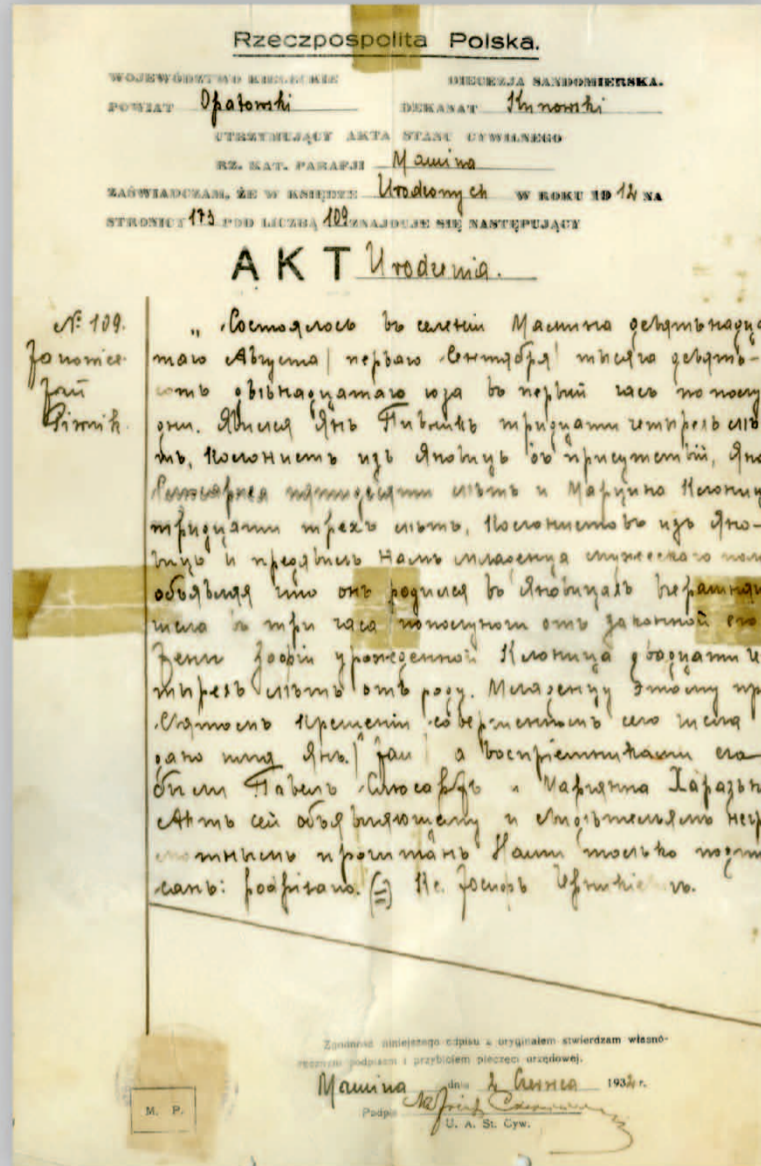 Rzeczpospolita Polska.
WOJEWÓDZTWO KIELECKIE DIECEZJA SANDOMIERSKA.
POWIAT Opatowski DEKANAT Kunowski
UTRZYMUJĄCY AKTA STANU CYWILNEGO
RZ. KAT. PARAFJI Mamina
ZAŚWIADCZAM, ŻE W KSIĘDZE Urodzonych W ROKU 1912 NA
STRONICY 173 POD LICZBĄ 109 ZNAJDUJE SIĘ NASTĘPUJĄCY
AKT Urodzenia.
№ 109.
Janowice
Jan
„Состоялось въ селеніи Мамина девятьнадца
таго Августа / перваго Сентября / тысяча девять-
сотъ двѣнадцатаго года въ первый часъ пополу
дни. Явился Янъ тридцати четырехъ лѣ
тъ, колонистъ изъ Яновицъ въ присутствіи, Яна
пятидесяти лѣтъ и Марцина
тридцати трехъ лѣтъ, колонистовъ изъ Яно-
вицъ и предъявилъ намъ младенца мужескаго пола
объявляя что онъ родился въ Яновицахъ вчерашняго
числа въ три часа пополуночи отъ законной его
жены Зофіи урожденной двадцати че
тырехъ лѣтъ отъ роду. Младенцу этому при
Святомъ Крещеніи совершенномъ сего числа
дано имя Янъ. / Jan / а воспріемниками его
были Павелъ и Марянна
Актъ сей объявляющему и свидѣтелямъ негр
амотнымъ прочитанъ Нами только подпи
санъ: Кс.
Zgodność niniejszego odpisu z oryginałem stwierdzam własno-
ręcznym podpisem i przybiciem pieczęci urzędowej.
Mamina dnia 2 Czerwca 1932 r.
M. P.
Podpis
U. A. St. Cyw.